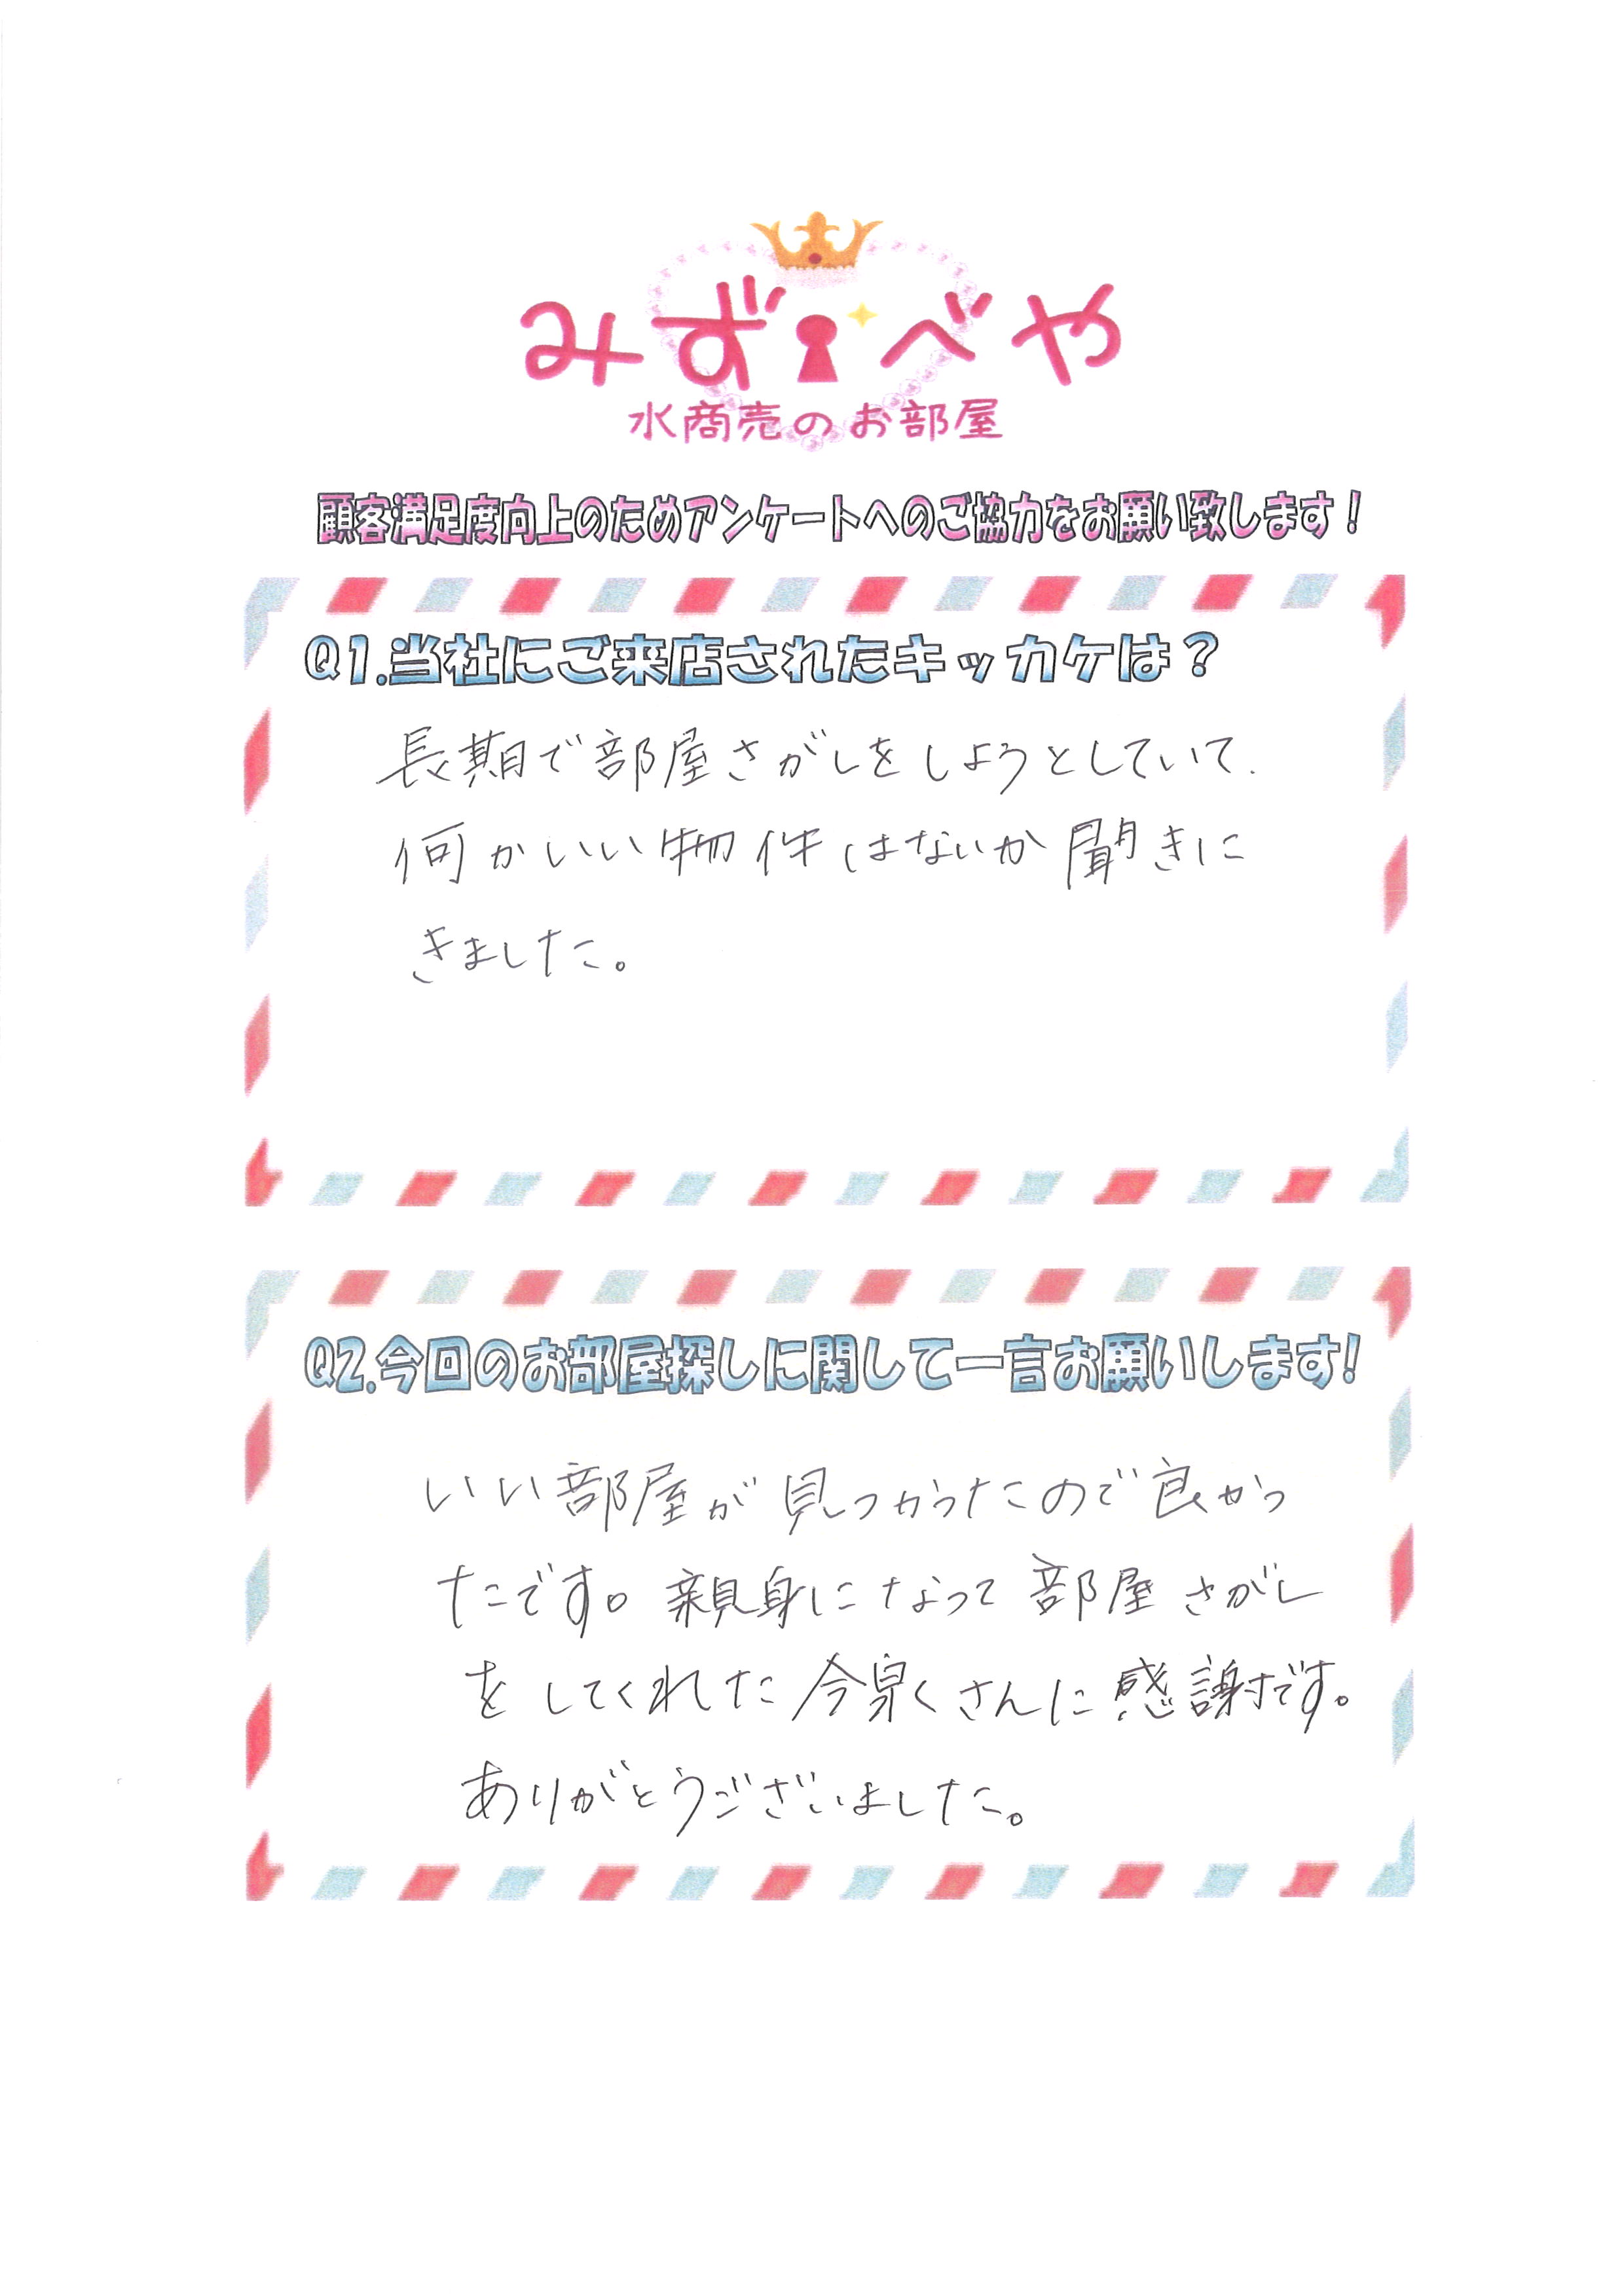 みずべや
水商売のお部屋
顧客満足度向上のためアンケートへのご協力をお願い致します！
Q1.当社にご来店されたキッカケは？
長期で部屋さがしをしようとしていて.
何かいい物件はないか聞きに
きました。
Q2.今回のお部屋探しに関して一言お願いします!
いい部屋が見つかったので良かっ
たです。親身になって部屋さがし
をしてくれた今泉くさんに感謝です。
ありがとうございました。